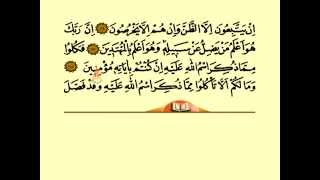 إِن يَتَّبِعُونَ إِلَّا الظَّنَّ وَإِنْ هُمْ إِلَّا يَخْرُصُونَ إِنَّ رَبَّكَ
هُوَ أَعْلَمُ مَن يَضِلُّ عَن سَبِيلِهِ وَهُوَ أَعْلَمُ بِالْمُهْتَدِينَ فَكُلُوا
مِمَّا ذُكِرَ اسْمُ اللَّهِ عَلَيْهِ إِن كُنتُم بِآيَاتِهِ مُؤْمِنِينَ
وَمَا لَكُمْ أَلَّا تَأْكُلُوا مِمَّا ذُكِرَ اسْمُ اللَّهِ عَلَيْهِ وَقَدْ فَصَّلَ